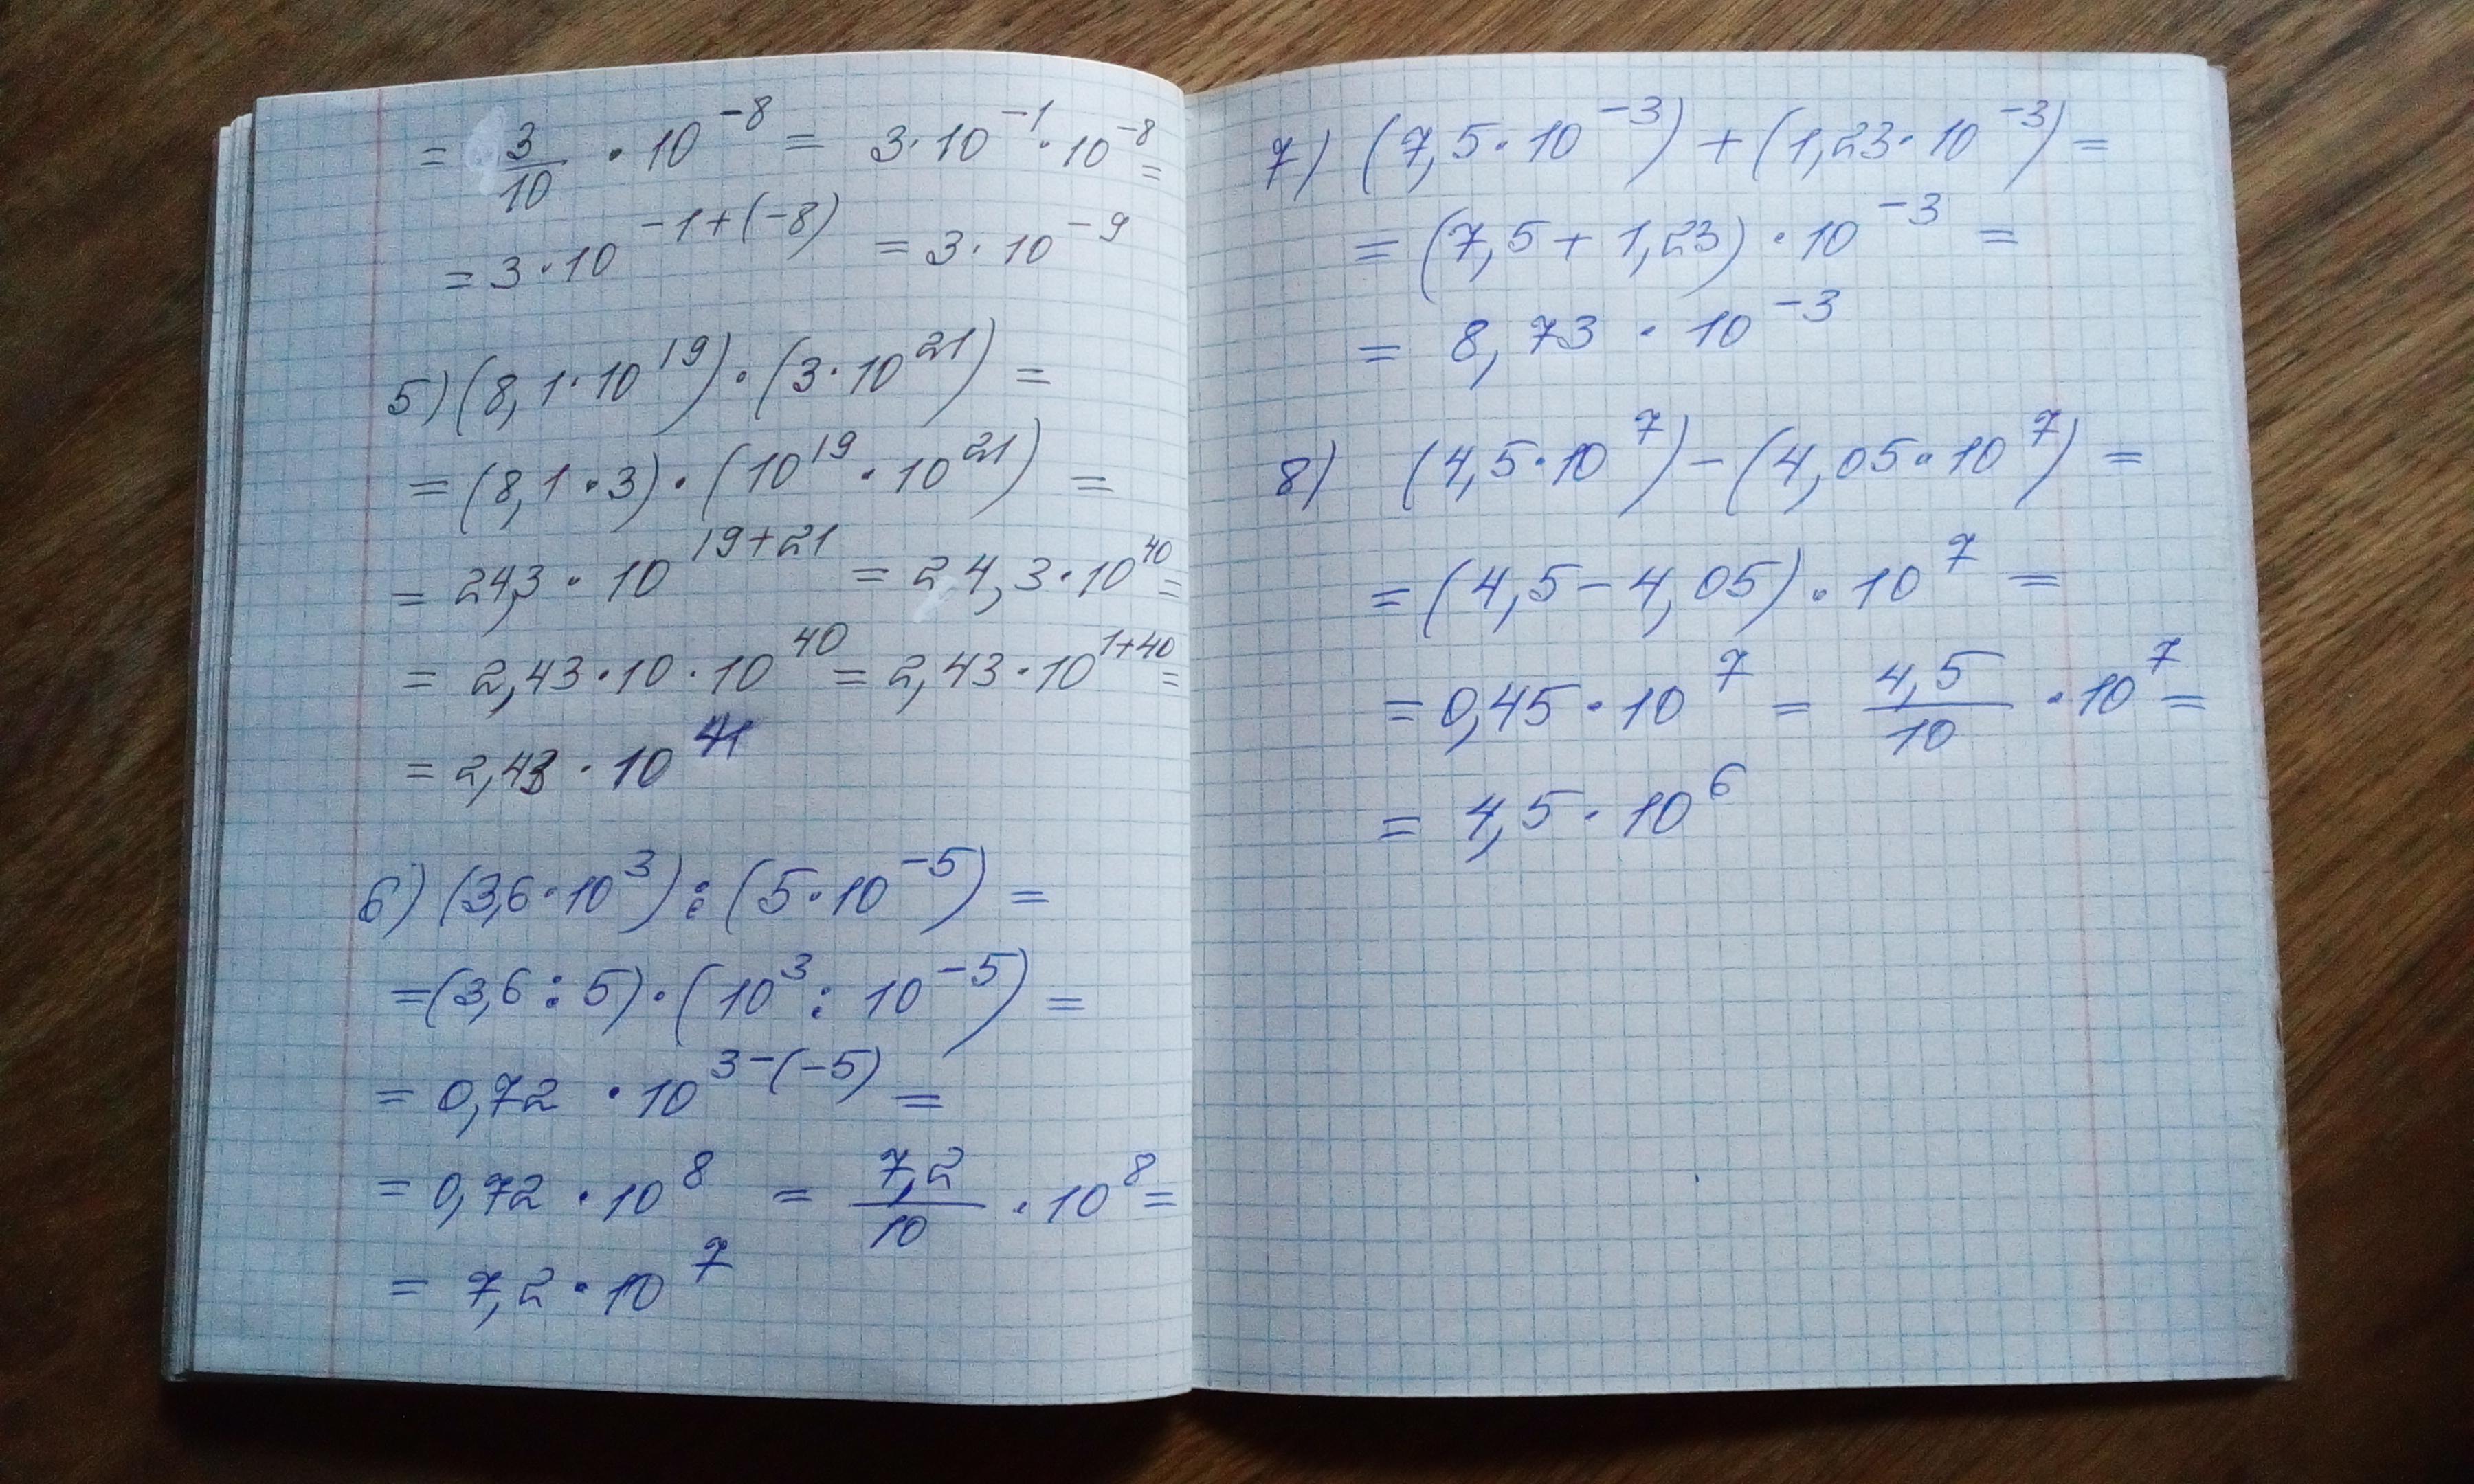 = 3/10 · 10^-8 = 3·10^-1 · 10^-8 =
= 3·10^-1+(-8) = 3·10^-9
5) (8,1·10^19) · (3·10^21) =
= (8,1·3) · (10^19 · 10^21) =
= 24,3 · 10^19+21 = 24,3·10^40 =
= 2,43·10·10^40 = 2,43·10^1+40 =
= 2,43 · 10^41
6) (3,6·10^3) : (5·10^-5) =
= (3,6 : 5) · (10^3 : 10^-5) =
= 0,72 · 10^3-(-5) =
= 0,72 · 10^8 = 7,2/10 · 10^8 =
= 7,2·10^7
7) (7,5·10^-3) + (1,23·10^-3) =
= (7,5 + 1,23) · 10^-3 =
= 8,73 · 10^-3
8) (4,5·10^7) - (4,05·10^7) =
= (4,5 - 4,05) · 10^7 =
= 0,45·10^7 = 4,5/10 · 10^7 =
= 4,5·10^6